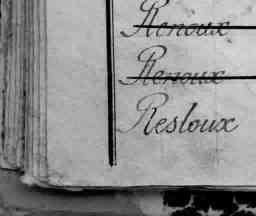 Renoux
Renoux
Resloux